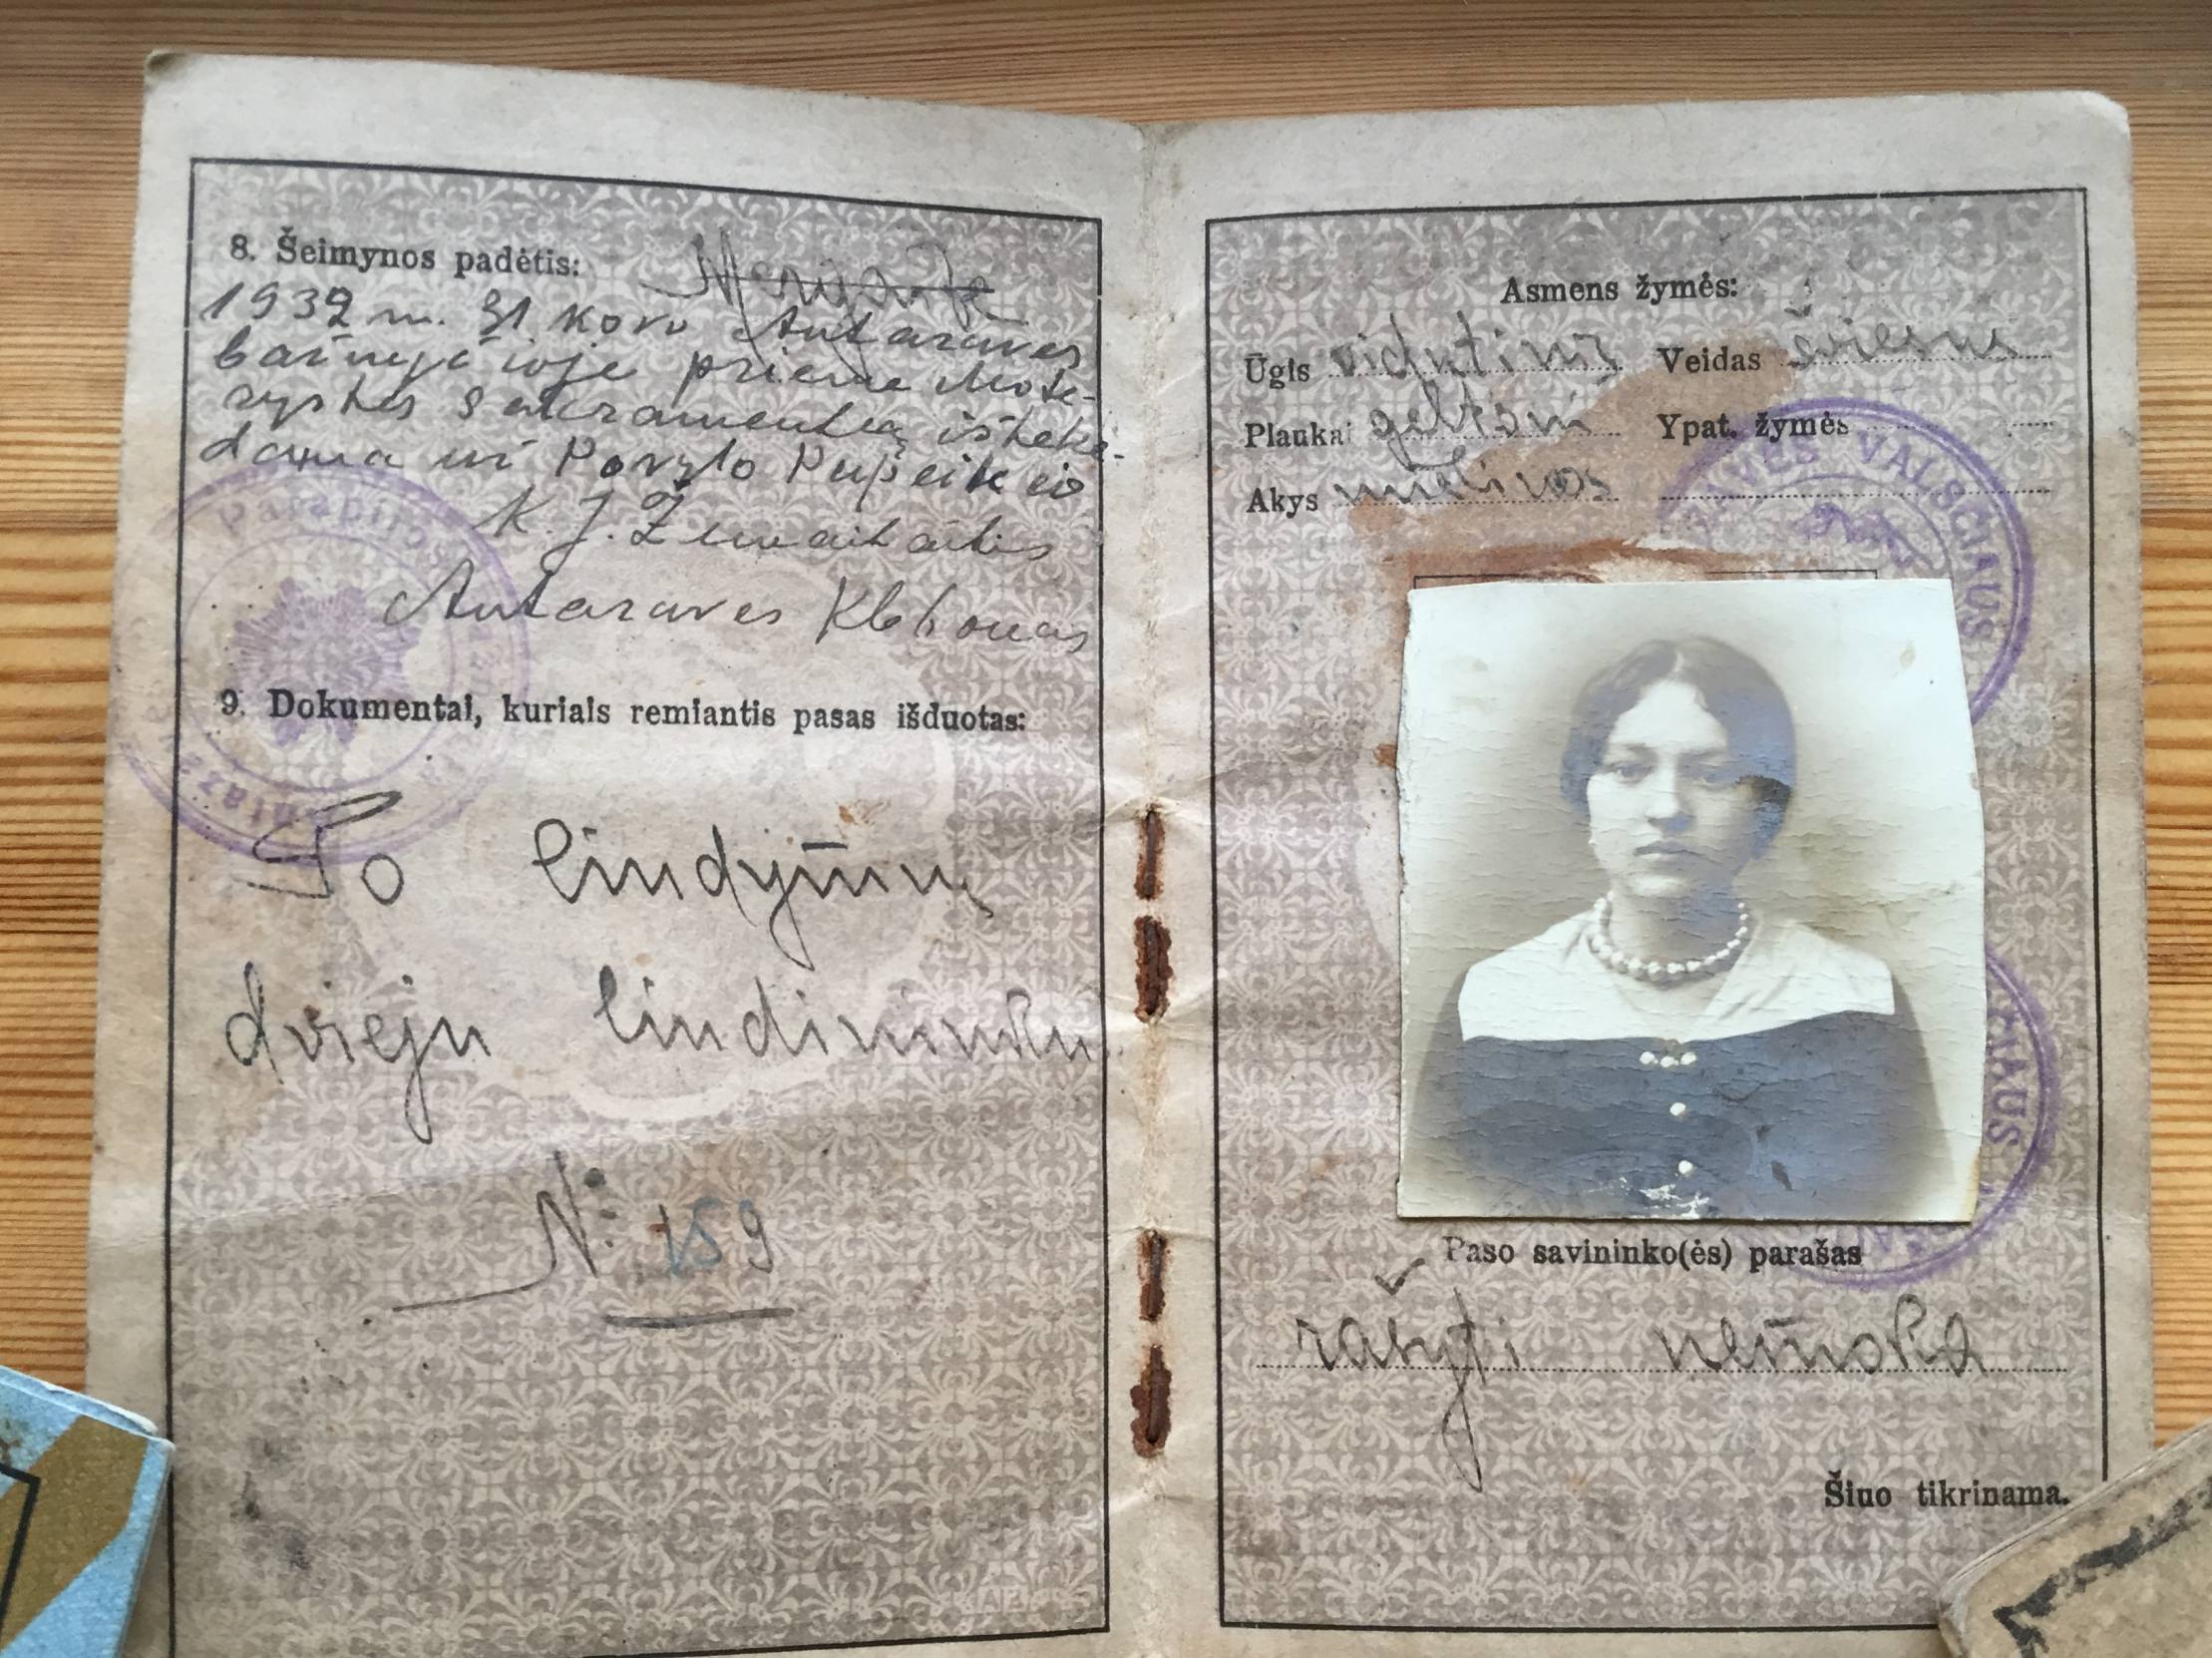 8. Šeimynos padėtis: Mergaitė
1932 m. 31 kovo Antazaves
bažnyčioje priėmė Mote-
rystės Sakramentą ištekė-
dama už Povylo Pupeikio
K. J. Žemaitaitis
Antazaves Klebonas
9. Dokumentai, kuriais remiantis pasas išduotas:
Po liudymu
dvieju liudininku
№ 159
Asmens žymės:
Ūgis vidutinis Veidas šviesus
Plaukai geltoni Ypat. žymės
Akys mėlinos
VALSČIAUS
Paso savininko(ės) parašas
rašyti nemoka
Šiuo tikrinama.